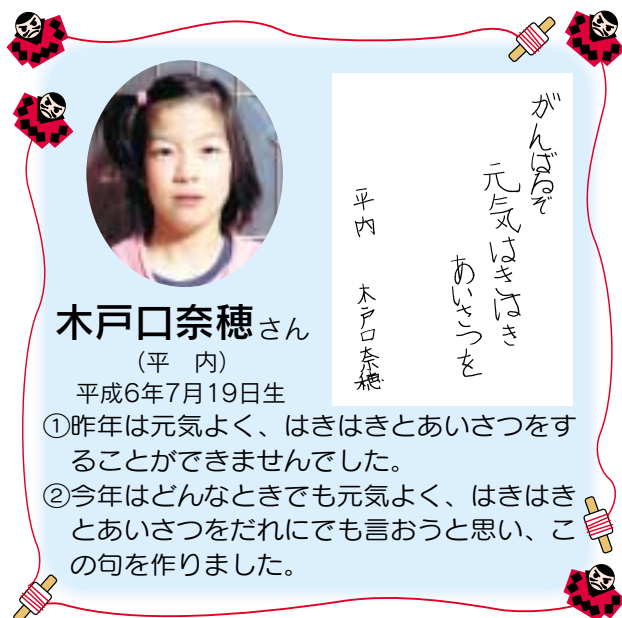 がんばるぞ
元気はきはき
あいさつを
平内 木戸口奈穂
木戸口奈穂さん
(平 内)
平成6年7月19日生
①昨年は元気よく、はきはきとあいさつをす
ることができませんでした。
②今年はどんなときでも元気よく、はきはき
とあいさつをだれにでも言おうと思い、こ
の句を作りました。